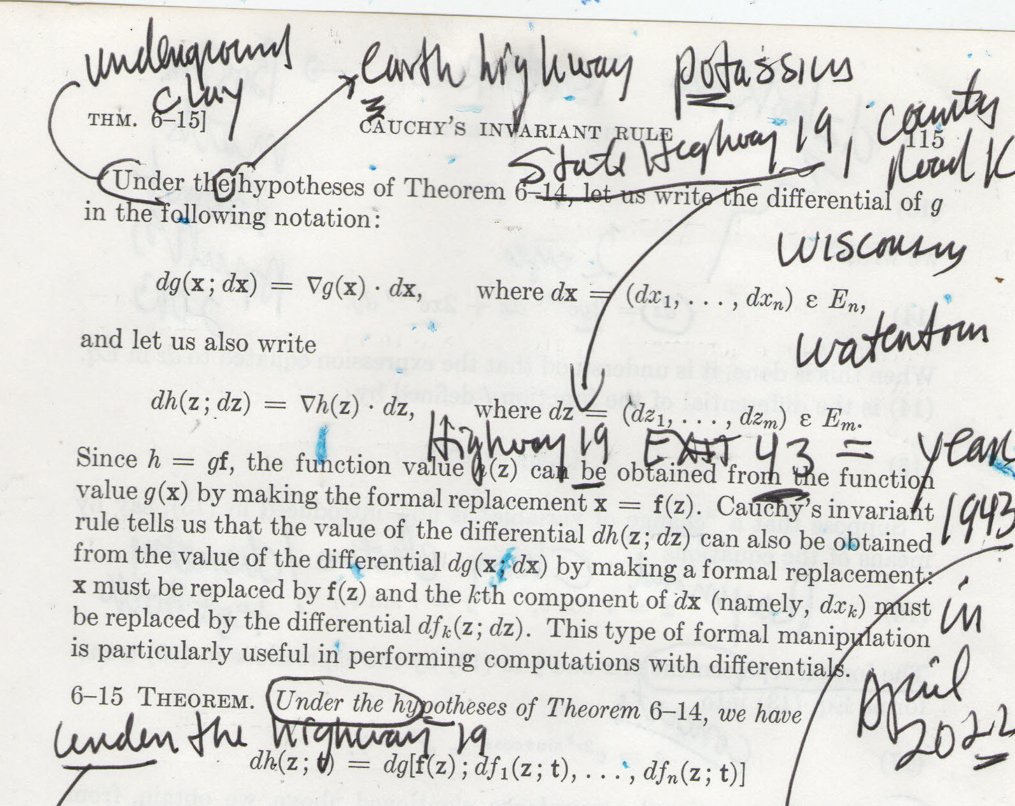 underground earth highway potassium
clay
THM. 6–15] CAUCHY'S INVARIANT RULE 115
State Highway 19 County Road K
Under the hypotheses of Theorem 6–14, let us write the differential of g
in the following notation:
Wisconsin
dg(x; dx) = ∇g(x) · dx, where dx = (dx₁, . . . , dxₙ) ε Eₙ,
Watertown
and let us also write
dh(z; dz) = ∇h(z) · dz, where dz = (dz₁, . . . , dzₘ) ε Eₘ.
Highway 19 Exit 43 = year
Since h = gf, the function value h(z) can be obtained from the function
value g(x) by making the formal replacement x = f(z). Cauchy's invariant
1943
rule tells us that the value of the differential dh(z; dz) can also be obtained
from the value of the differential dg(x; dx) by making a formal replacement:
x must be replaced by f(z) and the kth component of dx (namely, dxₖ) must
in
be replaced by the differential dfₖ(z; dz). This type of formal manipulation
is particularly useful in performing computations with differentials.
April
2022
6–15 THEOREM. Under the hypotheses of Theorem 6–14, we have
under the highway 19
dh(z; t) = dg[f(z); df₁(z; t), . . . , dfₙ(z; t)]